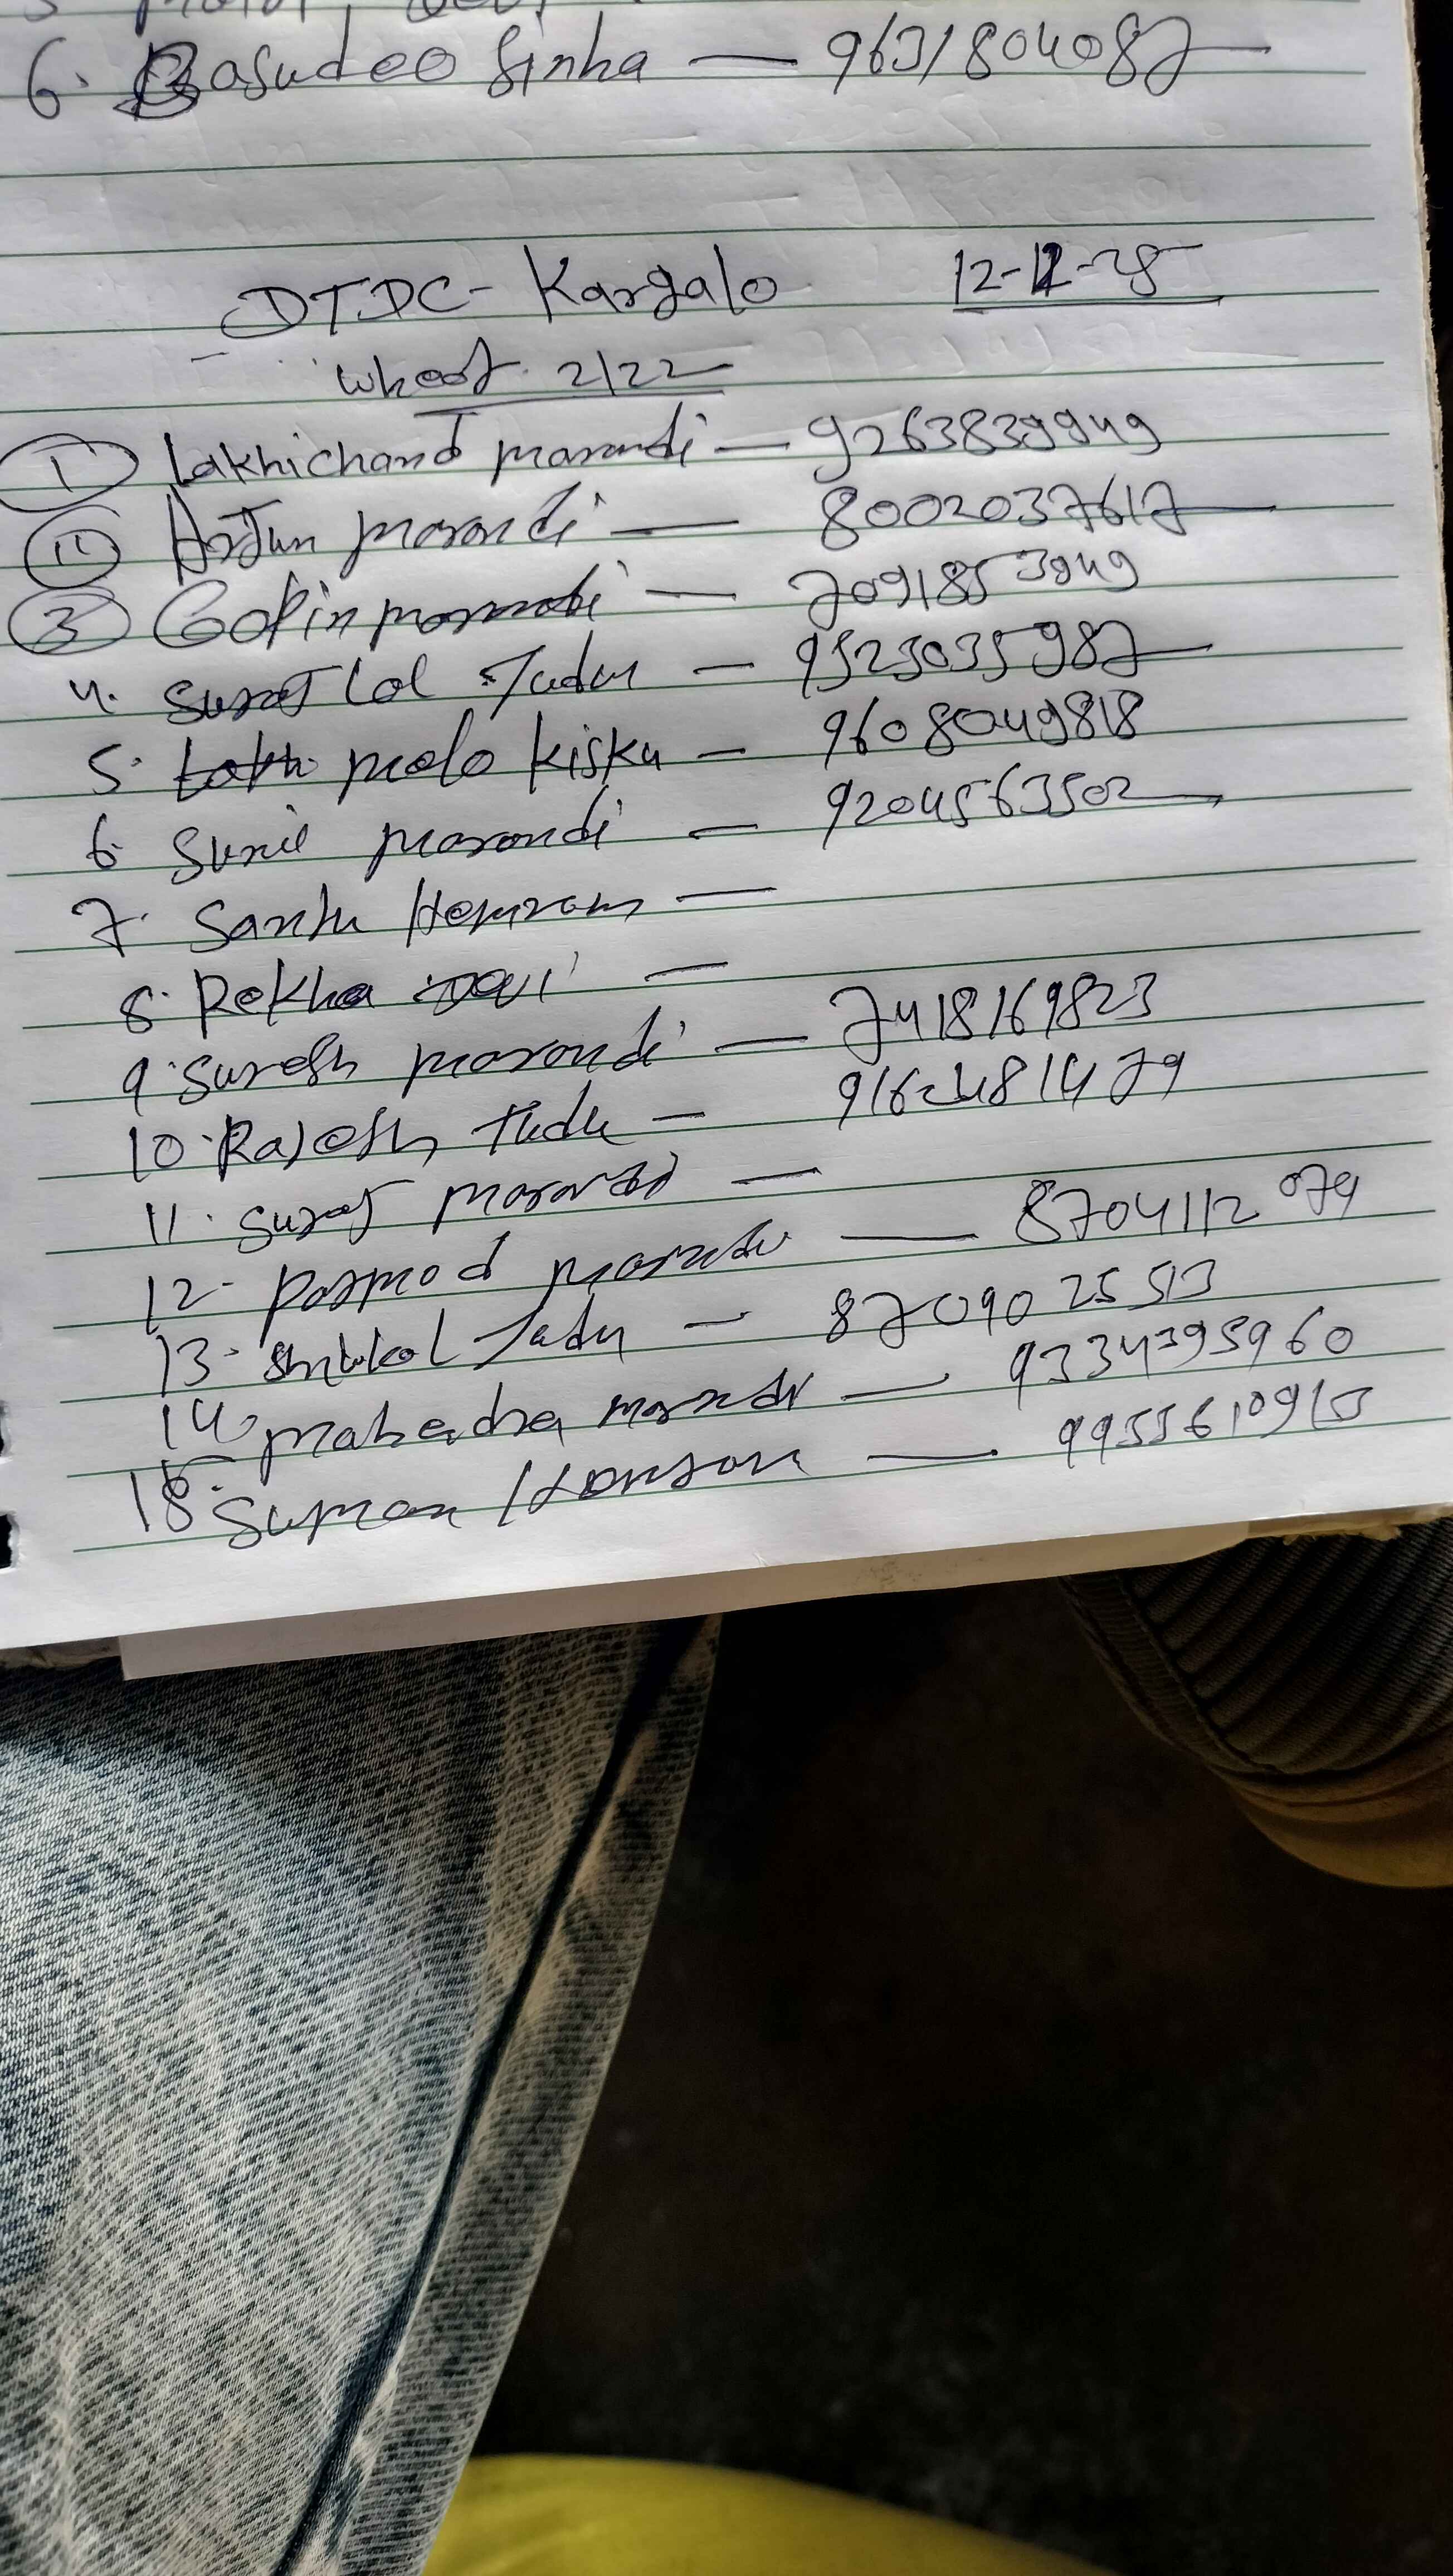 6. Basudeo Sinha — 9631804087
DTDC - Kargalo 12-12-25
Wheat 2122
1 Lakhichand marandi — 9263839949
11 Arjun marandi — 8002037617
3 Gopin marandi — 7091853949
4. Surat Lal Tudu — 9523035987
5. melo kisku — 9608049818
6 Sunil marandi — 9204563502
7. Santu Hemram —
8. Rekha Devi —
9. Suresh marandi — 7418169823
10. Rajesh Tudu — 9162481479
11. Suraj marandi —
12. Parmod marandi — 8704112079
13. Tudu — 8709025513
14. mahendra marandi — 9334395960
15. Suman — 9955610915